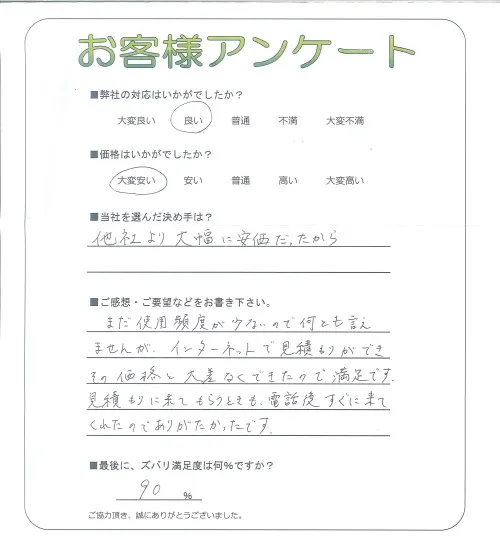 お客様アンケート
■弊社の対応はいかがでしたか？
大変良い 良い 普通 不満 大変不満
■価格はいかがでしたか？
大変安い 安い 普通 高い 大変高い
■当社を選んだ決め手は？
他社より大幅に安価だったから
■ご感想・ご要望などをお書き下さい。
まだ使用頻度が少ないので何とも言え
ませんが、インターネットで見積もりができ
その価格と大差なくできたので満足です。
見積もりに来てもらうときも、電話後すぐに来て
くれたのでありがたかったです。
■最後に、ズバリ満足度は何%ですか？
90 %
ご協力頂き、誠にありがとうございました。